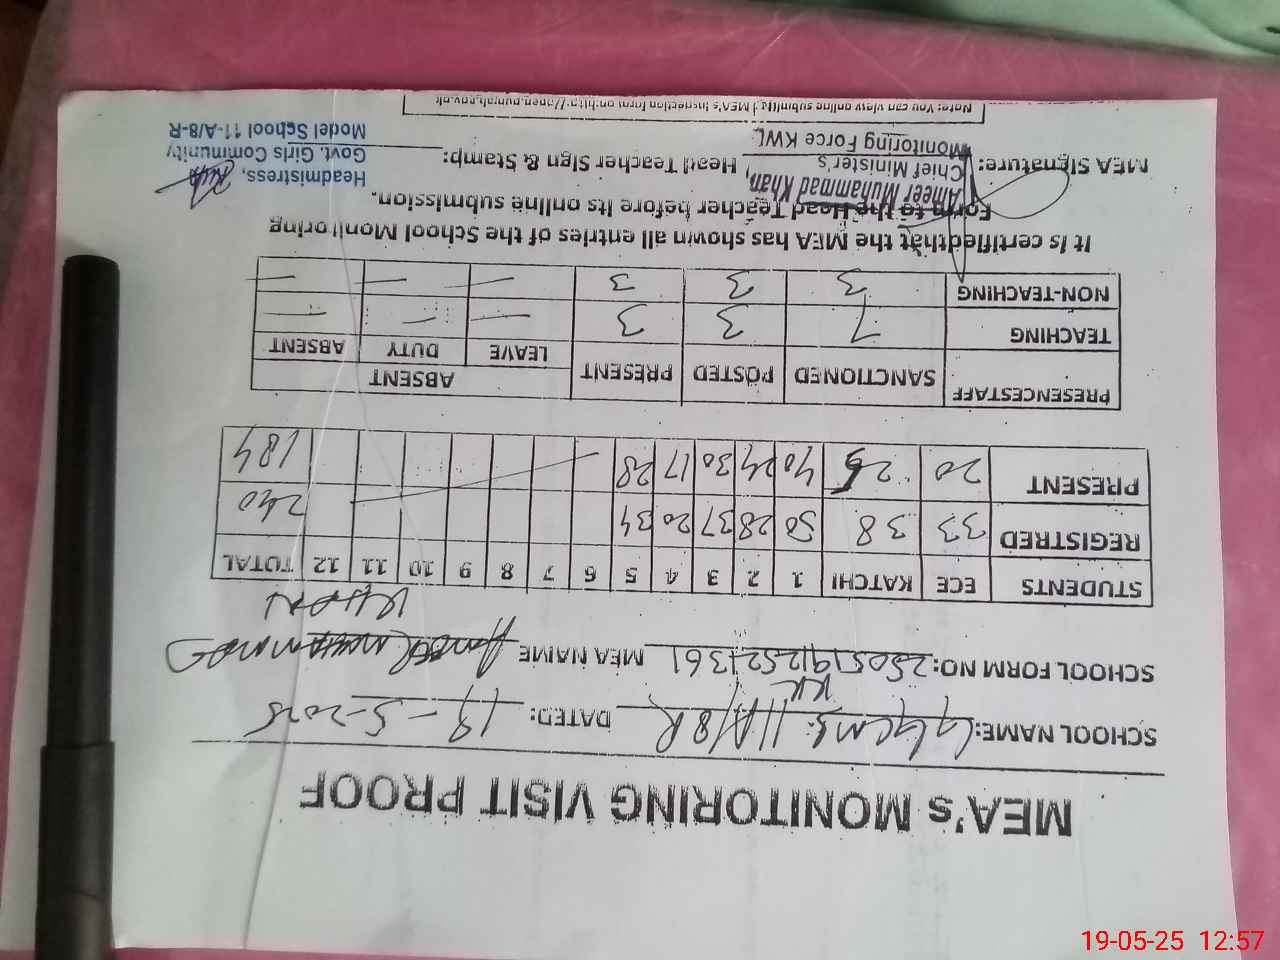 MEA's MONITORING VISIT PROOF
SCHOOL NAME: GGCMS 11A/8R DATED: 19-5-2025
KK
SCHOOL FORM NO: MEA NAME AMEER MUHAMMAD
KHAN
STUDENTS ECE KATCHI 1 2 3 4 5 6 7 8 9 10 11 12 TOTAL
REGISTRED 33 38 50 28 37 20 34 240
PRESENT 20 25 40 24 30 17 28 184
PRESENCESTAFF SANCTIONED POSTED PRESENT ABSENT
LEAVE DUTY ABSENT
TEACHING 7 3 3 — — —
NON-TEACHING 3 3 3 — — —
It is certifiedthat the MEA has shown all entries of the School Monitoring
Form to the Head Teacher before its online submission.
MEA Signature: Head Teacher Sign & Stamp:
Ameer Muhammad Khan
Chief Minister's
Monitoring Force KWL
Headmistress,
Govt. Girls Community
Model School 11-A/8-R
Note: You can view online submitted MEA's inspection form on:http://open.punjab.gov.pk
19-05-25 12:57